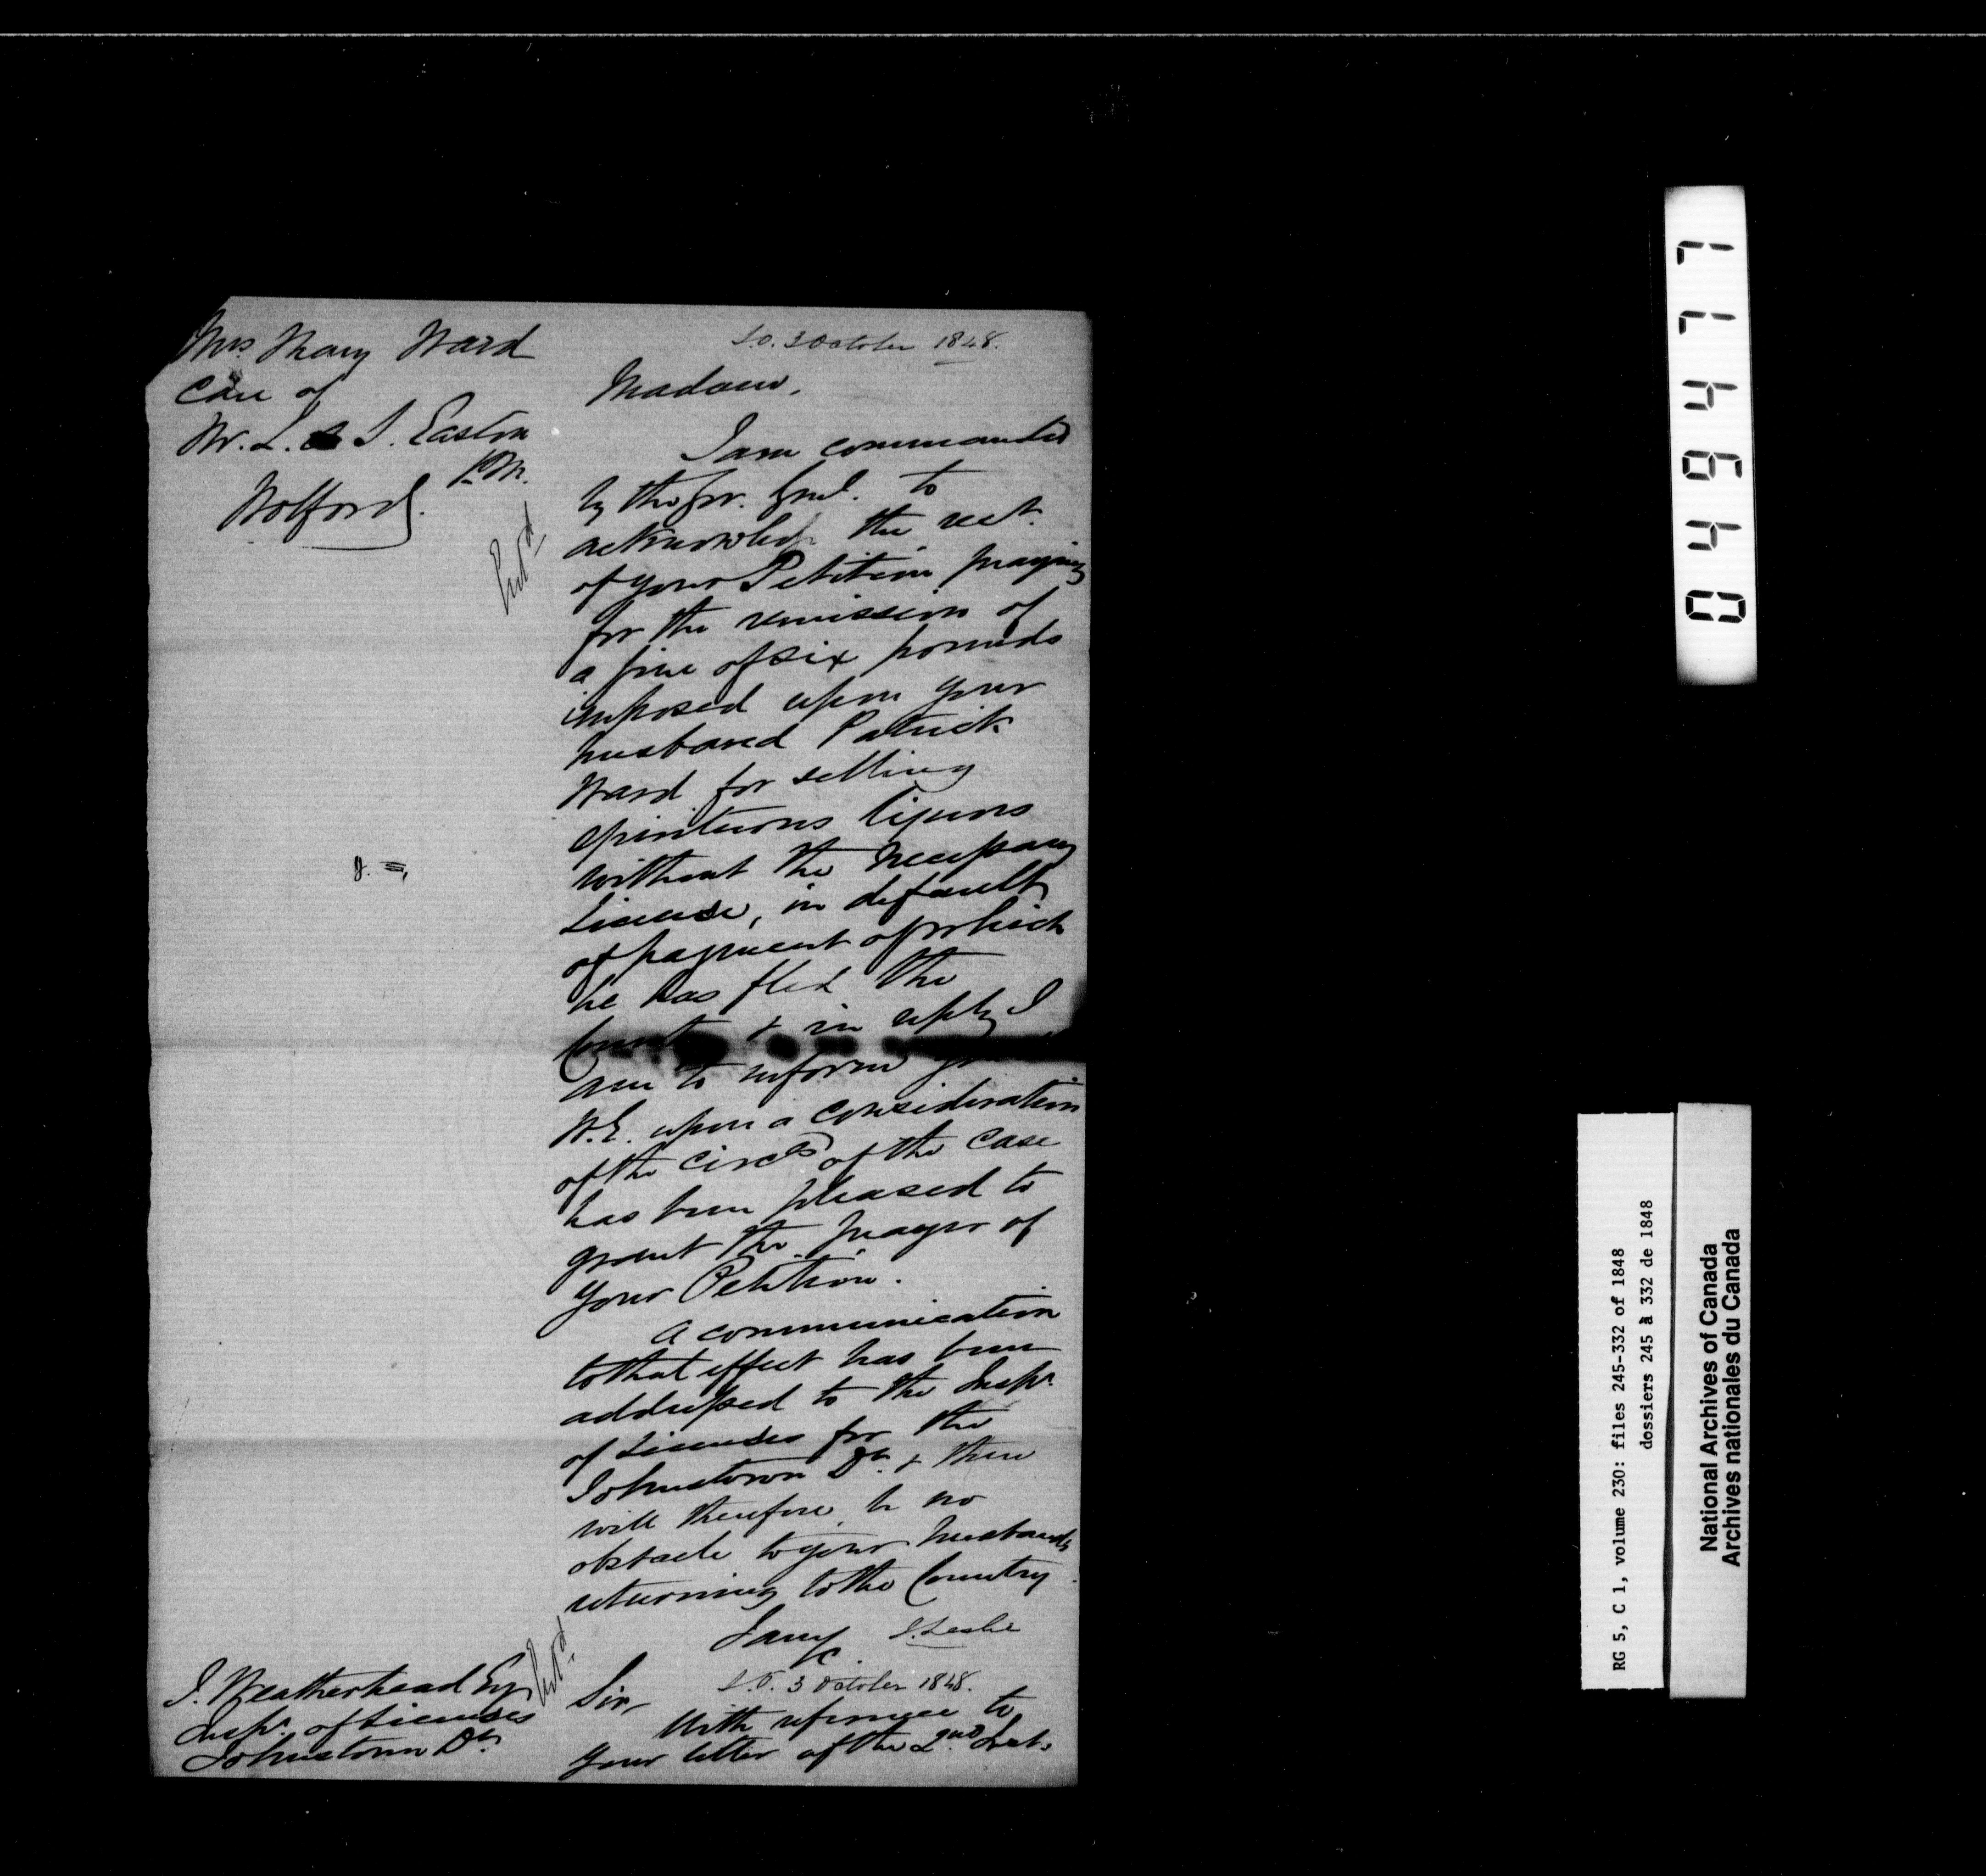 Mrs Mary Ward
Care of
W. L. & S. Easton
P.M.
Wolford.
Entd
S.O. 3 October 1848.
Madam,
I am commanded
by the Gov. Genl. to
acknowledge the rect.
of your Petition praying
for the remission of
a fine of six pounds
imposed upon your
husband Patrick
Ward for selling
spirituous liquors
without the necessary
License, in default
of payment of which
he has fled the
& in reply I
am to inform
H.E. upon a consideration
of the circs of the case
has been pleased to
grant the prayer of
your Petition.
A communication
to that effect has been
addressed to the Inspr.
of Licenses for the
Johnstown Dt. & there
will therefore be no
obstacle to your husbands
returning to the Country
I am &c
J. Leslie
J. Weatherhead Esq
Inspr. of Licenses
Johnstown Dt.
Entd
S.O. 3 October 1848.
Sir,
With reference to
your letter of the 2nd Inst.
044977
RG 5, C 1, volume 230: files 245-332 of 1848
dossiers 245 à 332 de 1848
National Archives of Canada
Archives nationales du Canada